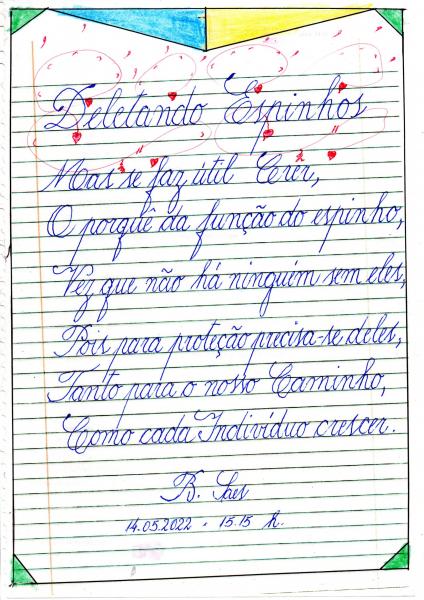 Deletando Espinhos
Mas se faz útil Crer,
O porquê da função do espinho,
Vez que não há ninguém sem eles,
Pois para proteção precisa-se deles,
Tanto para o nosso Caminho,
Como cada Indivíduo crescer.
B. Saes
14.05.2022 - 15.15 h.